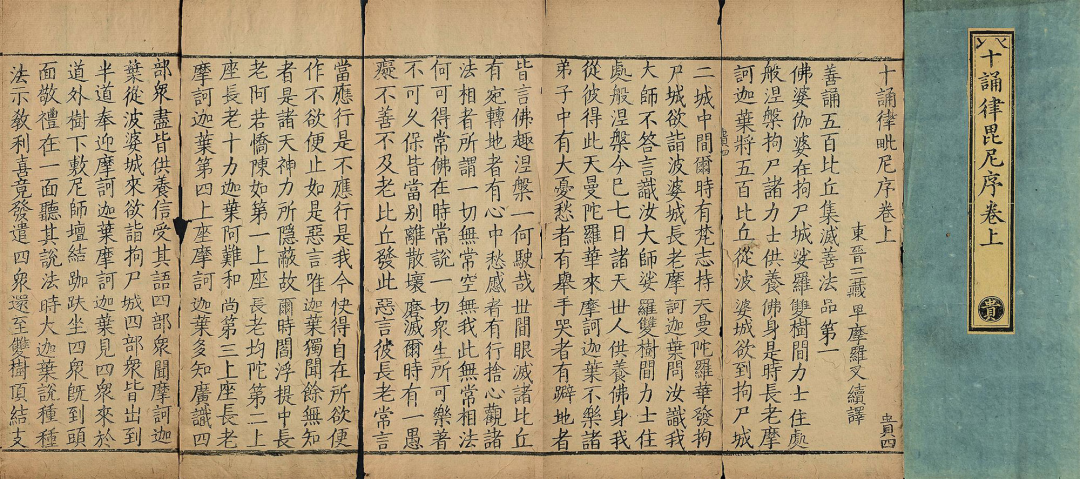 十誦律毘尼序卷上
貴
十誦律毗尼序卷上
東晉三藏卑摩羅叉續譯
貴四
善誦五百比丘集滅善法品第一
佛婆伽婆在拘尸城娑羅雙樹間力士住處
般涅槃拘尸諸力士供養佛身是時長老摩
訶迦葉將五百比丘從波婆城欲到拘尸城
二城中間爾時有梵志持天曼陀羅華發拘
尸城欲詣波婆城長老摩訶迦葉問汝識我
大師不答言識汝大師娑羅雙樹間力士住
處般涅槃今已七日諸天世人供養佛身我
從彼得此天曼陀羅華來摩訶迦葉不樂諸
弟子中有大憂愁者有舉手哭者有躃地者
皆言佛趣涅槃一何駛哉世間眼滅諸比丘
有宛轉地者有心中愁慼者有行捨心觀諸
法相者所謂一切無常空無我此無常相法
何可得常佛在時常說一切衆生所可樂著
不可久保皆當別離散壞磨滅爾時有一愚
癡不善不及老比丘發此惡言彼長老常言
當應行是不應行是我今快得自在所欲便
作不欲便止如是惡言唯迦葉獨聞餘無知
者是諸天神力所隱蔽故爾時閻浮提中長
老阿若憍陳如第一上座長老均陀第二上
座長老十力迦葉阿難和尚第三上座長老
摩訶迦葉第四上座摩訶迦葉多知廣識四
部衆盡皆供養信受其語四部衆聞摩訶迦
葉從波婆城來欲詣拘尸城四部衆皆出到
半道奉迎摩訶迦葉摩訶迦葉見四衆來於
道外樹下敷尼師壇結跏趺坐四衆旣到頭
面敬禮在一面聽其說法時大迦葉說種種
法示教利喜竟發遣四衆還至雙樹頂結支